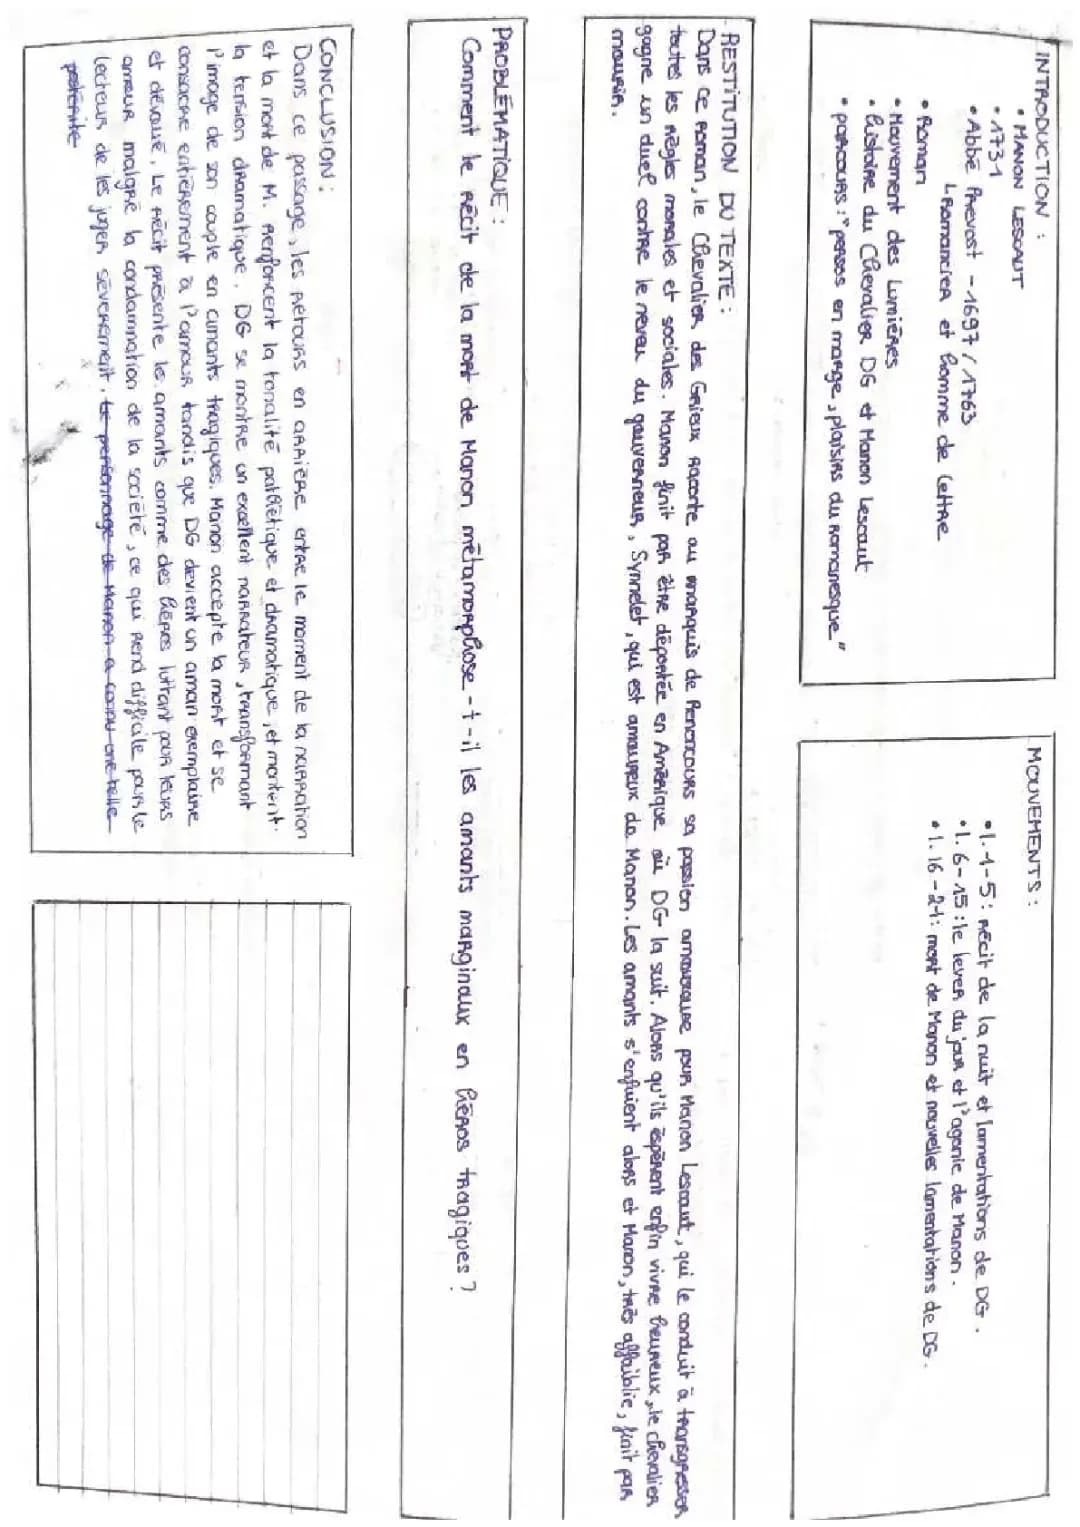 INTRODUCTION :
• MANON LESCAUT
• 1731
• Abbé Prévost - 1697 / 1763
↳ Romancier et homme de lettre
• Roman
• Mouvement des Lumières
• histoire du Chevalier DG et Manon Lescaut
• parcours : "persos en marge, plaisirs du romanesque"
MOUVEMENTS :
• l. 1-5 : récit de la nuit et lamentations de DG.
• l. 6-15 : le lever du jour et l'agonie de Manon.
• l. 16-21 : mort de Manon et nouvelles lamentations de DG.
RESTITUTION DU TEXTE :
Dans ce roman, le Chevalier des Grieux raconte au marquis de Renoncours sa passion amoureuse pour Manon Lescaut, qui le conduit à transgresser
toutes les règles morales et sociales. Manon finit par être déportée en Amérique où DG la suit. Alors qu'ils espèrent enfin vivre heureux, le chevalier
gagne un duel contre le neveu du gouverneur, Synnelet, qui est amoureux de Manon. Les amants s'enfuient alors et Manon, très affaiblie, finit par
mourir.
PROBLÉMATIQUE :
Comment le récit de la mort de Manon métamorphose-t-il les amants marginaux en héros tragiques ?
CONCLUSION :
Dans ce passage, les retours en arrière entre le moment de la narration
et la mort de M. renforcent la tonalité pathétique et dramatique, et montent
la tension dramatique. DG se montre un excellent narrateur, transformant
l'image de son couple en amants tragiques. Manon accepte la mort et se
consacre entièrement à l'amour tandis que DG devient un aman exemplaire
et dévoué. Le récit présente les amants comme des héros luttant pour leurs
amour malgré la condamnation de la société, ce qui rend difficile pour le
lecteurs de les juger sévèrement. Le personnage de Manon a connu une telle
postérité